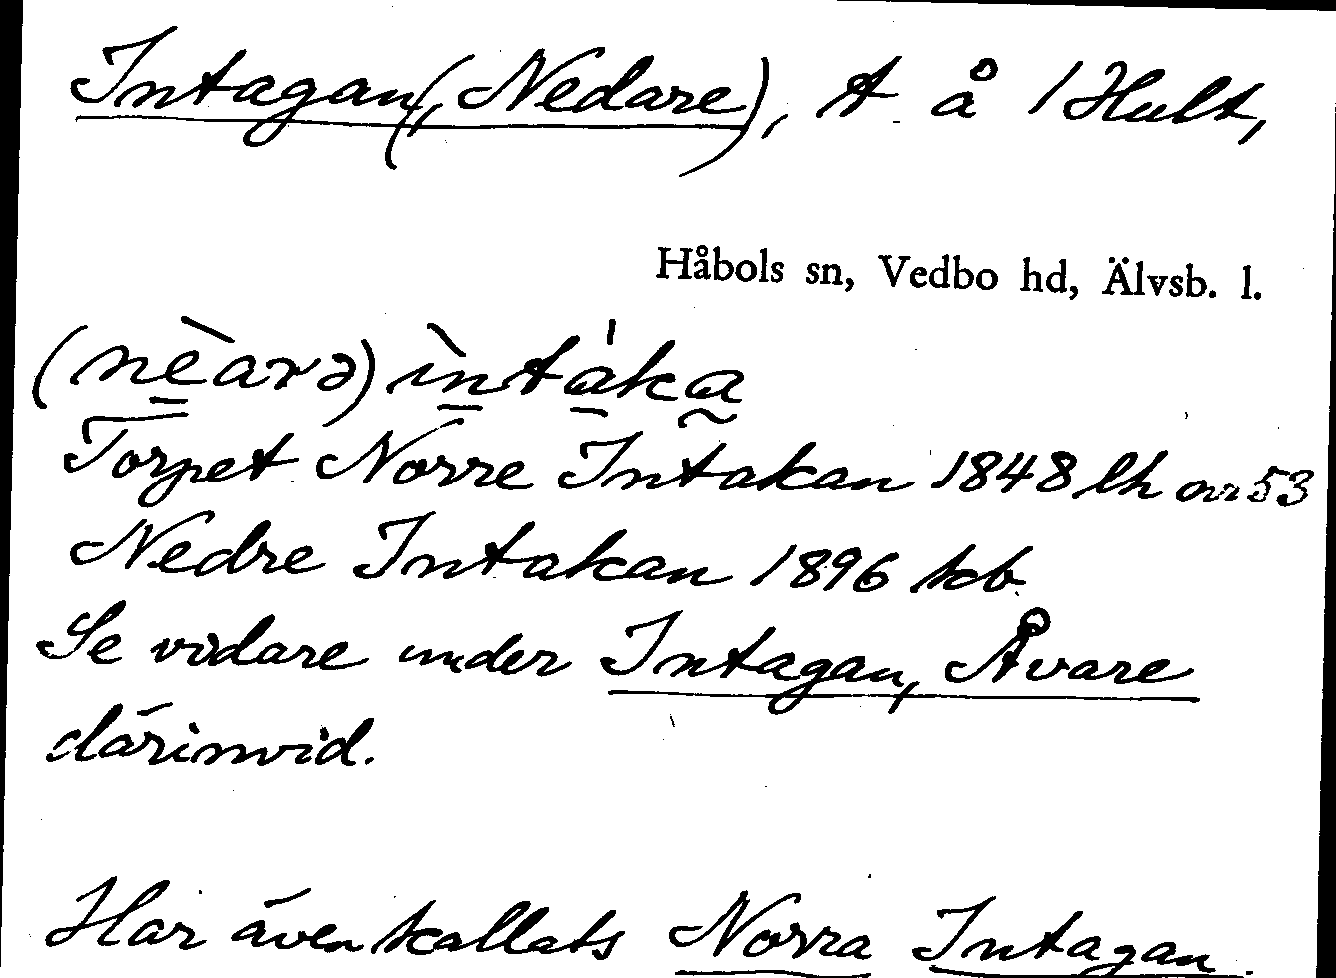 Intagan(, Nedare), t. å 1 Hult,
Håbols sn, Vedbo hd, Älvsb. l.
(nèarə) ìntáka
Torpet Norre Intakan 1848 lh nr 53
Nedre Intakan 1896 kb.
Se vidare under Intagan, Åvare
därinvid.
Har även kallats Norra Intagan.